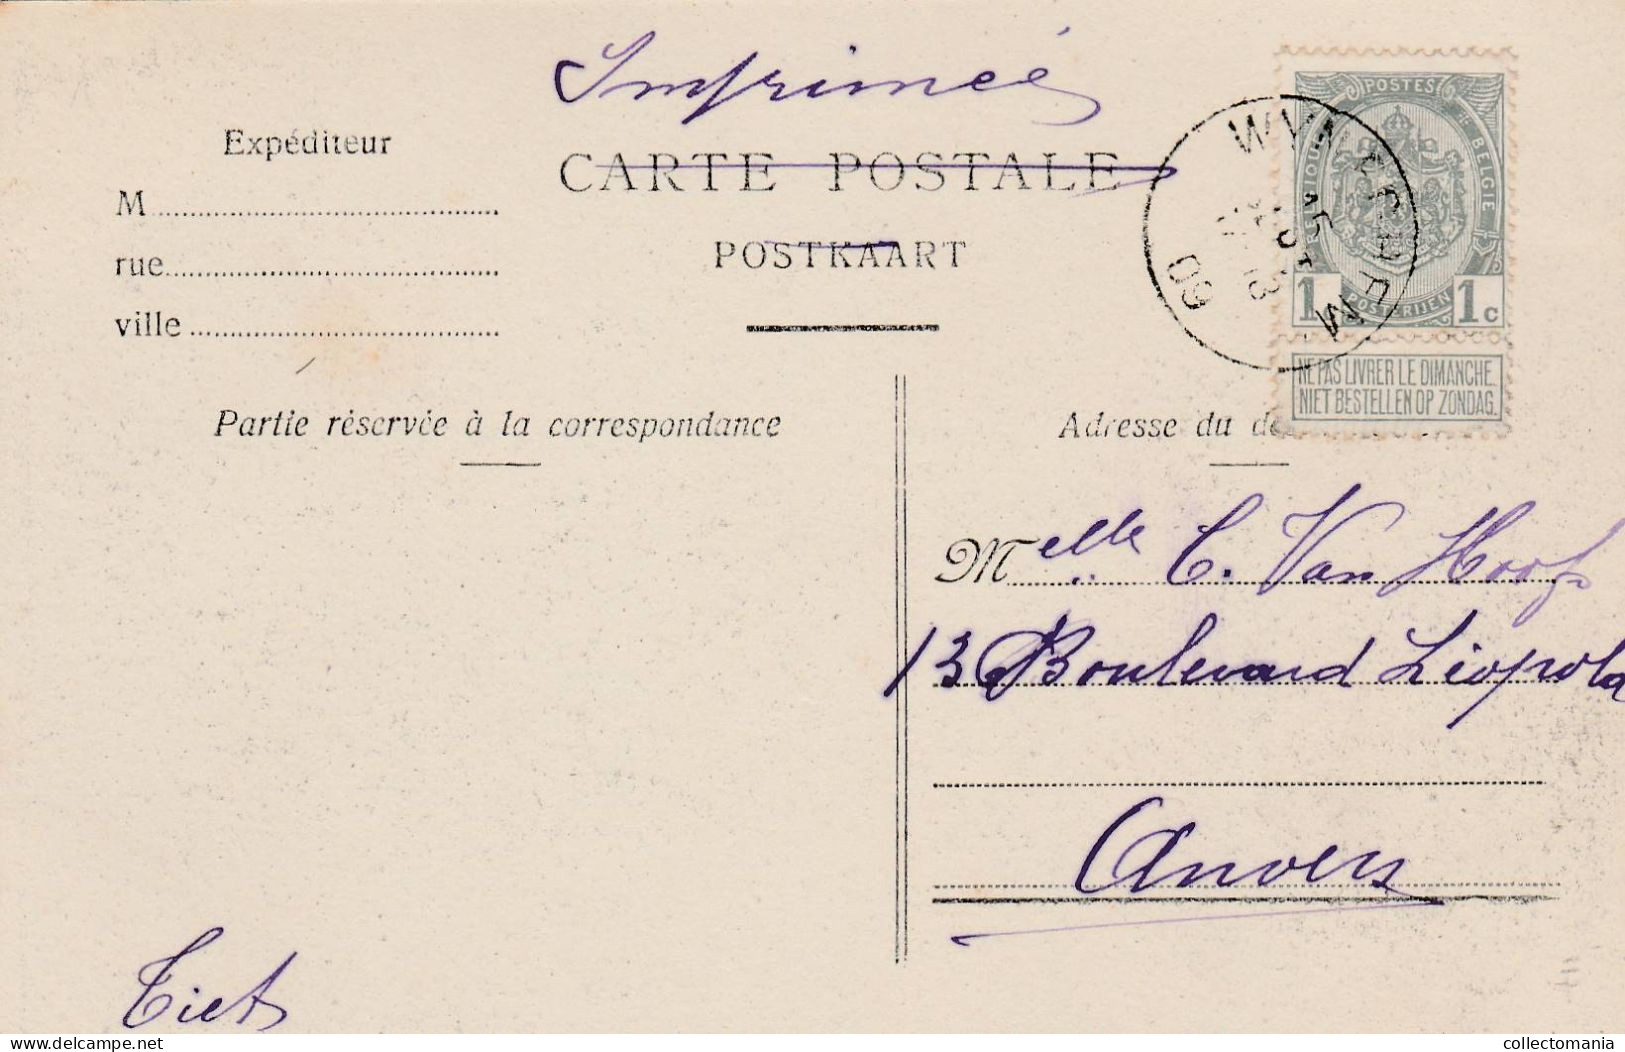 Imprimés
CARTE POSTALE
POSTKAART
Expéditeur
M
rue
ville
POSTES
BELGIE
POSTERIJEN
1 1c
NE PAS LIVRER LE DIMANCHE.
NIET BESTELLEN OP ZONDAG.
WYNEGEM
09
Partie réservée à la correspondance
Adresse du
Melle C. Van Hoof
13 Boulevard Léopold
Anvers
Tiet
delcampe.net
collectomania